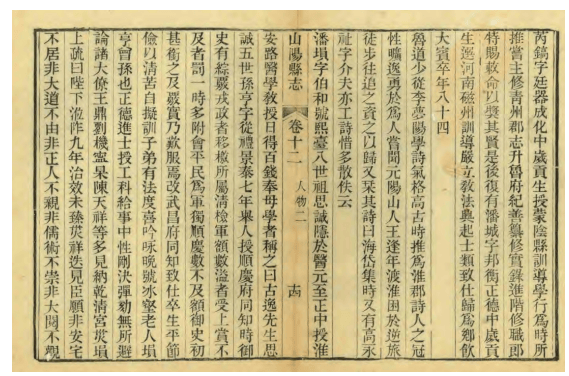 芮鎬字廷器成化中歲貢生授蒙陰縣訓導學行爲時所
推嘗主修青州郡志升魯府紀善纂修實錄進階修職郎
特賜敕命以獎其賢是後復有潘城字邦衡正德中歲貢
生遷河南磁州訓導嚴立敎法興起士類致仕歸爲鄉飲
大賓卒年八十四
魯道少從李夢陽學詩氣格高古時推爲淮郡詩人之冠
性曠逸勇於爲人嘗聞元陽山人王逢年渡淮困於逆旅
徒步往追之資之以歸又栞其詩曰海岱集時又有高承
祉字介夫亦工詩惜多散佚云
潘塤字伯和號熙臺八世祖思誠隱於醫元至正中授淮
山陽縣志
卷十二
人物二
十四
安路醫學敎授日得百錢奉母學者稱之曰古逸先生思
誠五世孫亨字從禮景泰七年舉人授順慶府同知時御
史有綜嚴戎政者移檄所屬淸檢軍額數溢者受上賞不
及者罰一時多附會平民爲軍獨順慶數不及額御史初
甚銜之及覈實乃歎服焉改武昌府同知致仕卒生平節
儉以淸苦自擬訓子弟有法度喜吟咏晚號冰壑老人塤
亨曾孫也正德進士授工科給事中性剛決彈劾無所避
論諸大僚王鼎劉機甯杲陳天祥等多見納乾淸宮災塤
上疏曰陛下涖阼九年治效未臻災祥迭見臣願非安宅
不居非大道不由非正人不親非儒術不崇非大閱不觀